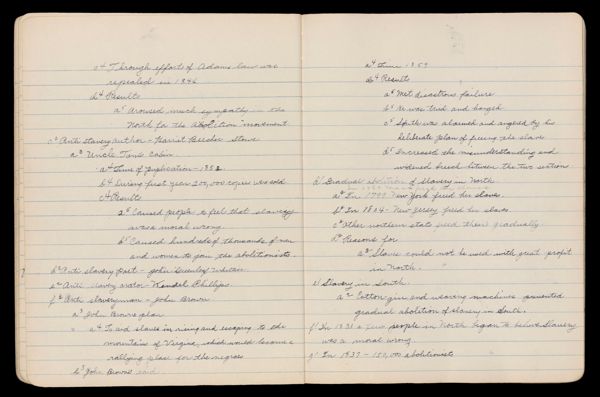 c⁴ Through efforts of Adams law was
repealed in 1844
d⁴ Results
a⁵ Aroused much sympathy in the
North for the Abolition movement
c² Anti slavery author - Harriet Beecher Stowe
a³ Uncle Tom's Cabin
a⁴ Time of publication - 1852
b⁴ During first year 300,000 copies was sold
c⁴ Results
a⁵ Caused people to feel that slavery
was a moral wrong
b⁵ Caused hundreds of thousands of men
and women to join the abolitionists.
d² Anti slavery poet - John Greenleaf Whittier
e² Anti slavery orator - Wendell Phillips
f² Anti slavery man - John Brown
a³ John Browns plan
a⁴ To aid slaves in rising and escaping to the
mountains of Virginia, which would become a
rallying place for the negroes
b³ John Browns raid
a⁴ Time 1859
b⁴ Results
a⁵ Met disastrous failure
b⁵ He was tried and hanged
c⁵ South was alarmed and angered by his
deliberate plan of freeing the slave
d⁵ Increased the misunderstanding and
widened breech between the two sections
d' Gradual abolition of slavery in North
a² In 1799 New York freed her slaves.
b² In 1804 - New Jersey freed her slaves
c² Other northern states freed them gradually
d² Reasons for
a³ Slaves could not be used with great profit
in North.
e' Slavery in South.
a² Cotton gin and weaving machines prevented
gradual abolition of slavery in South.
f' In 1831 a few people in North began to believe slavery
was a moral wrong.
g' In 1837 - 150,000 abolitionists